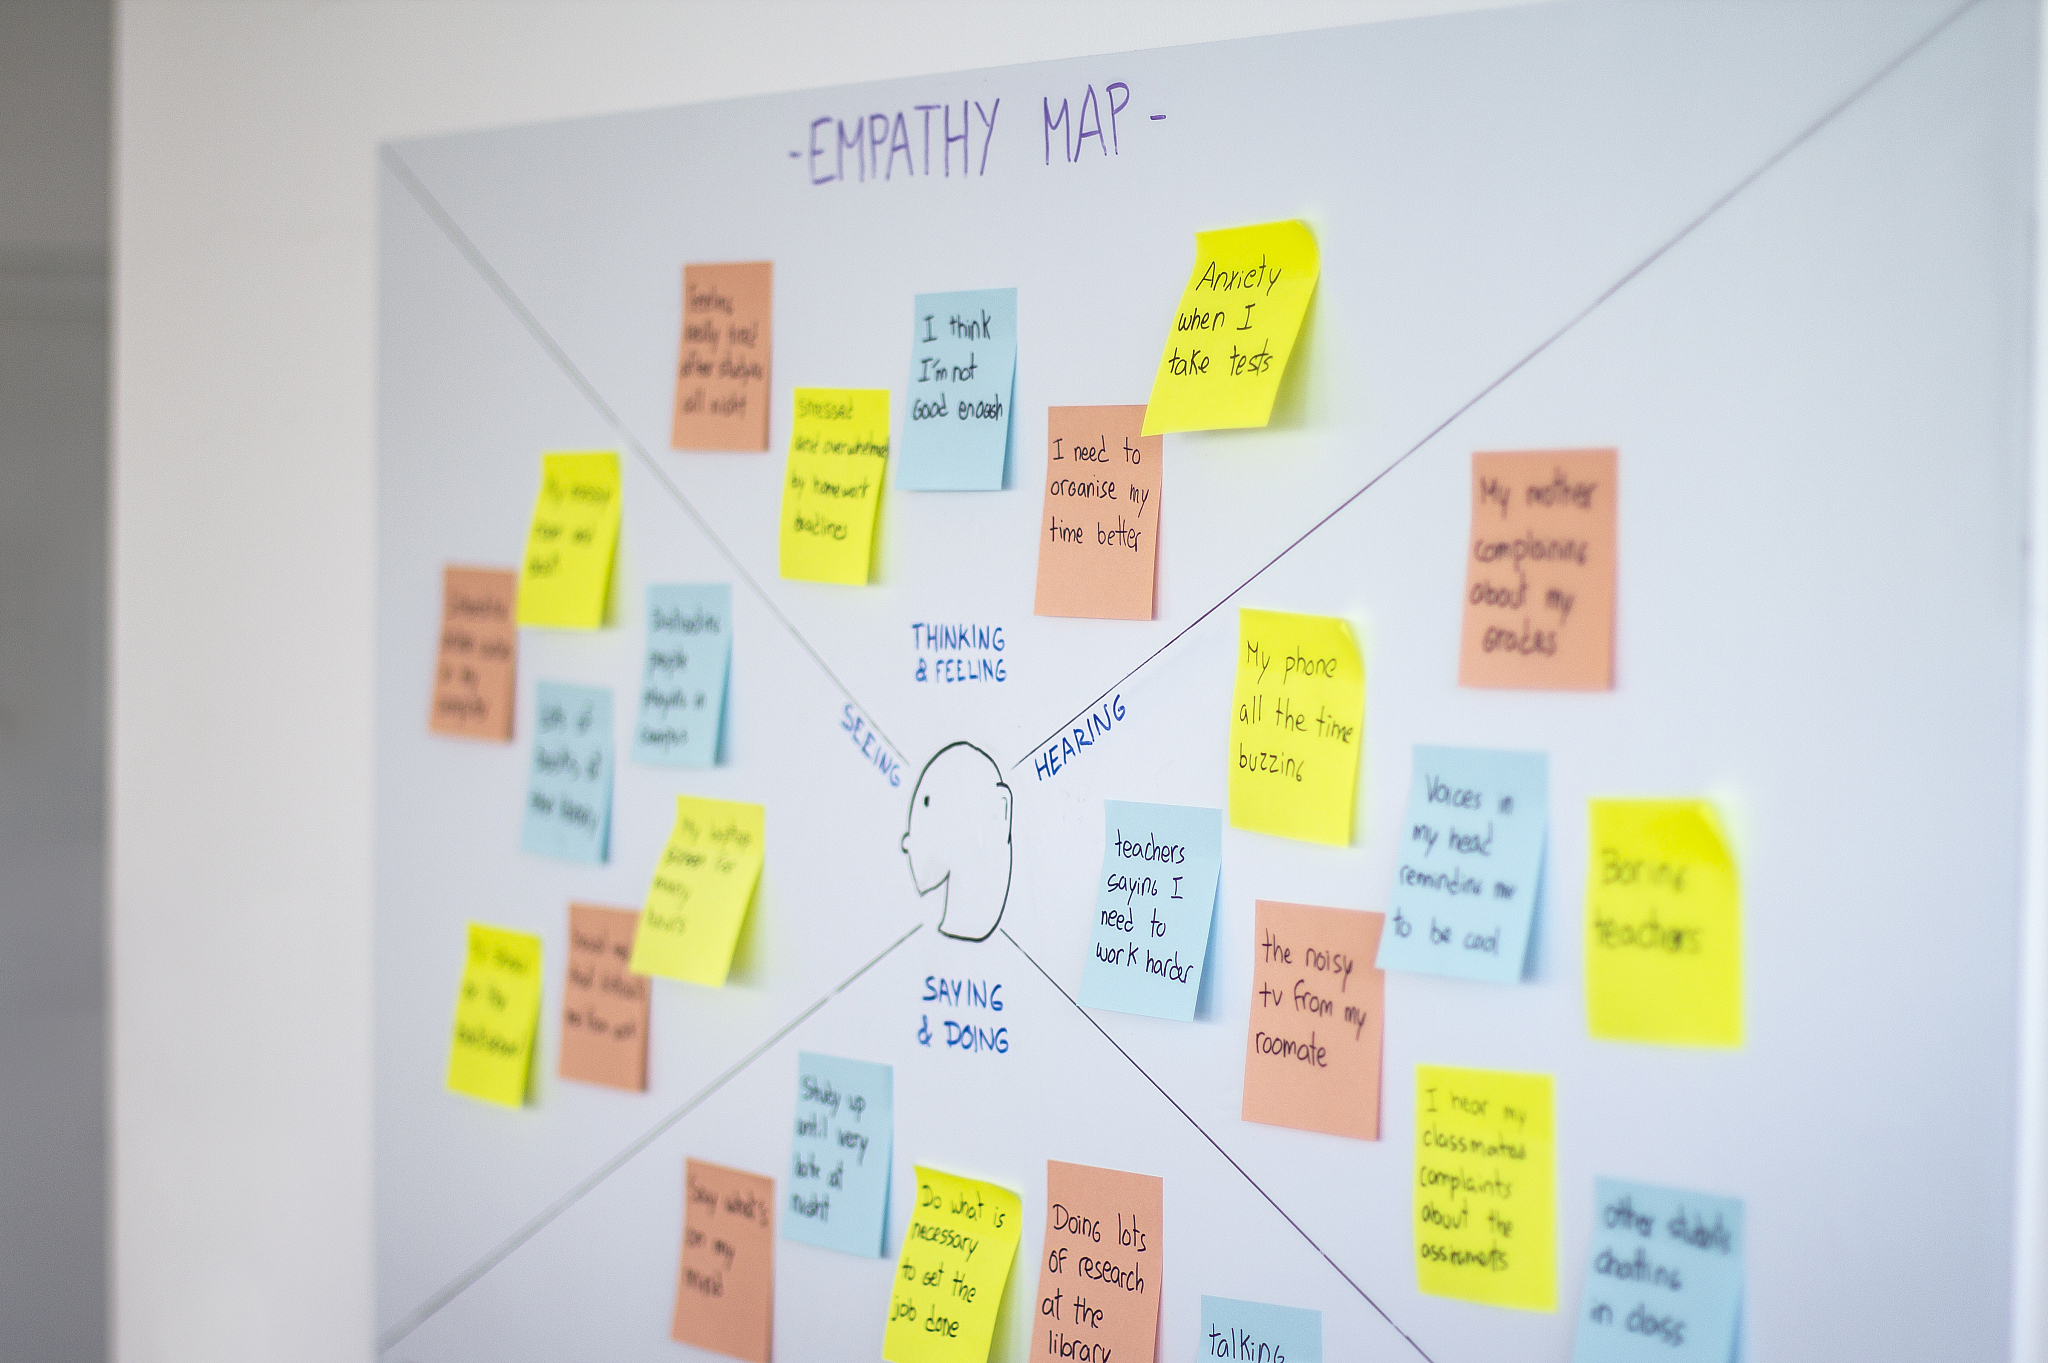 -EMPATHY MAP-
Feeling
easily tired
after studying
all night
Stressed
and overwhelmed
by homework
deadlines
I think
I'm not
Good enough
I need to
organise my
time better
Anxiety
when I
take tests
THINKING
& FEELING
SEEING
HEARING
My messy
room and
desk
people
playing in
campus
Lots of
My laptop
screen for
many
hours
My mother
complaining
about my
grades
My phone
all the time
buzzing
Voices in
my head
reminding me
to be cool
Boring
teachers
teachers
saying I
need to
work harder
the noisy
tv from my
roomate
I hear my
classmates
complaints
about the
assignments
other students
chatting
in class
SAYING
& DOING
Study up
until very
late at
night
Say what's
on my
mind
Do what is
necessary
to get the
job done
Doing lots
of research
at the
library
talking